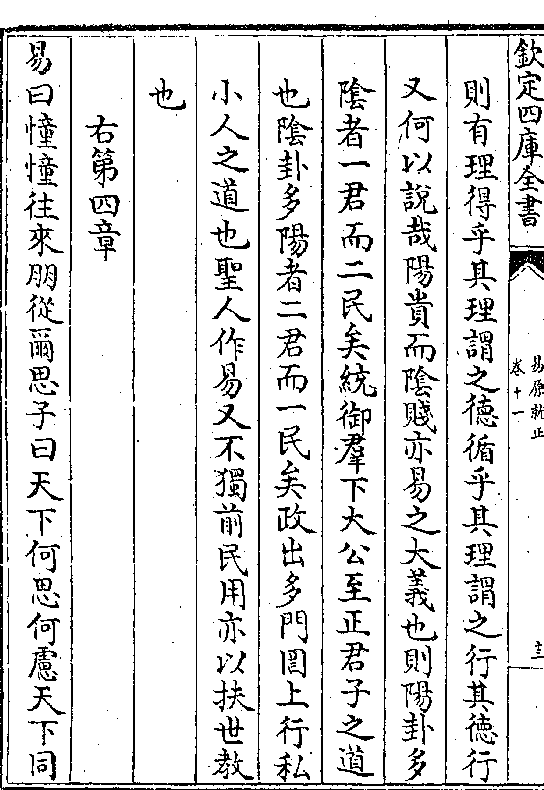 欽定四庫全書
易原就正
卷十一
十三
則有理得乎其理謂之德循乎其理謂之行其德行
又何以說哉陽貴而陰賤亦易之大義也則陽卦多
陰者一君而二民矣統御羣下大公至正君子之道
也陰卦多陽者二君而一民矣政出多門罔上行私
小人之道也聖人作易又不獨前民用亦以扶世教
也
右第四章
易曰憧憧往來朋從爾思子曰天下何思何慮天下同